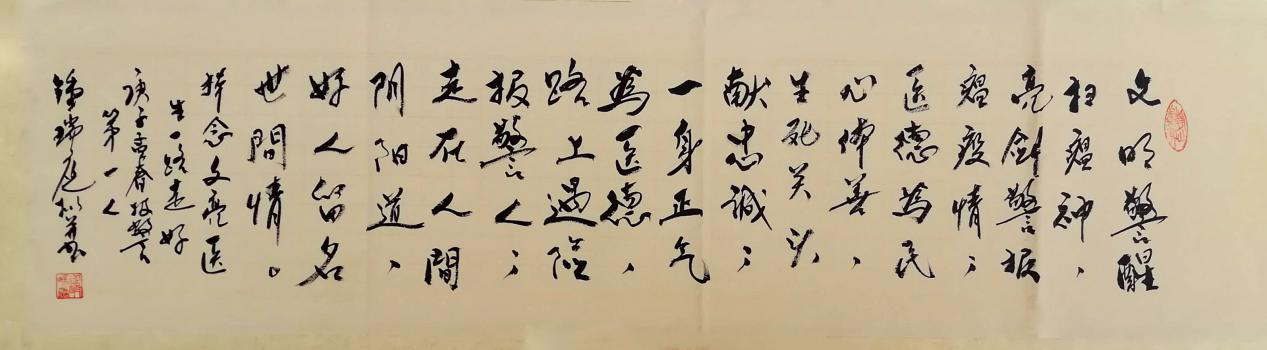 文明警醒
扫瘟神、
亮剑警报
瘟疫情；
医德為民
心怖善、
生死关头
献忠诚；
一身正气
為医德、
路上遇险
报警人；
走在人間
阴阳道、
好人留名
世間情。
悼念文亮医
生一路走好
庚子春报警
第一人
鐘瑞庭